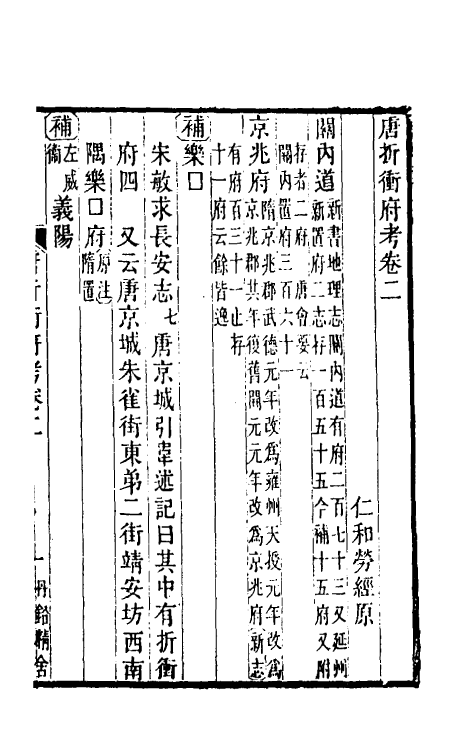 唐折衝府考卷二
仁和勞經原
關內道新書地理志關內道有府二百七十三又延州
新置府二志存一百五十五今補十五府又附
存者二府 唐會要云
關內置府三百六十一
京兆府隋京兆郡武德元年改爲雍州天授元年改爲
京兆郡其年復舊開元元年改爲京兆府新志
有府百三十一止存
十一府云餘皆逸
補樂口
宋敏求長安志七唐京城引韋述記曰其中有折衝
府四 又云唐京城朱雀街東弟二街靖安坊西南
隅樂口府原注
隋置
補左威
衞義陽
唐折衝府考卷二
一
丹鉛精舍